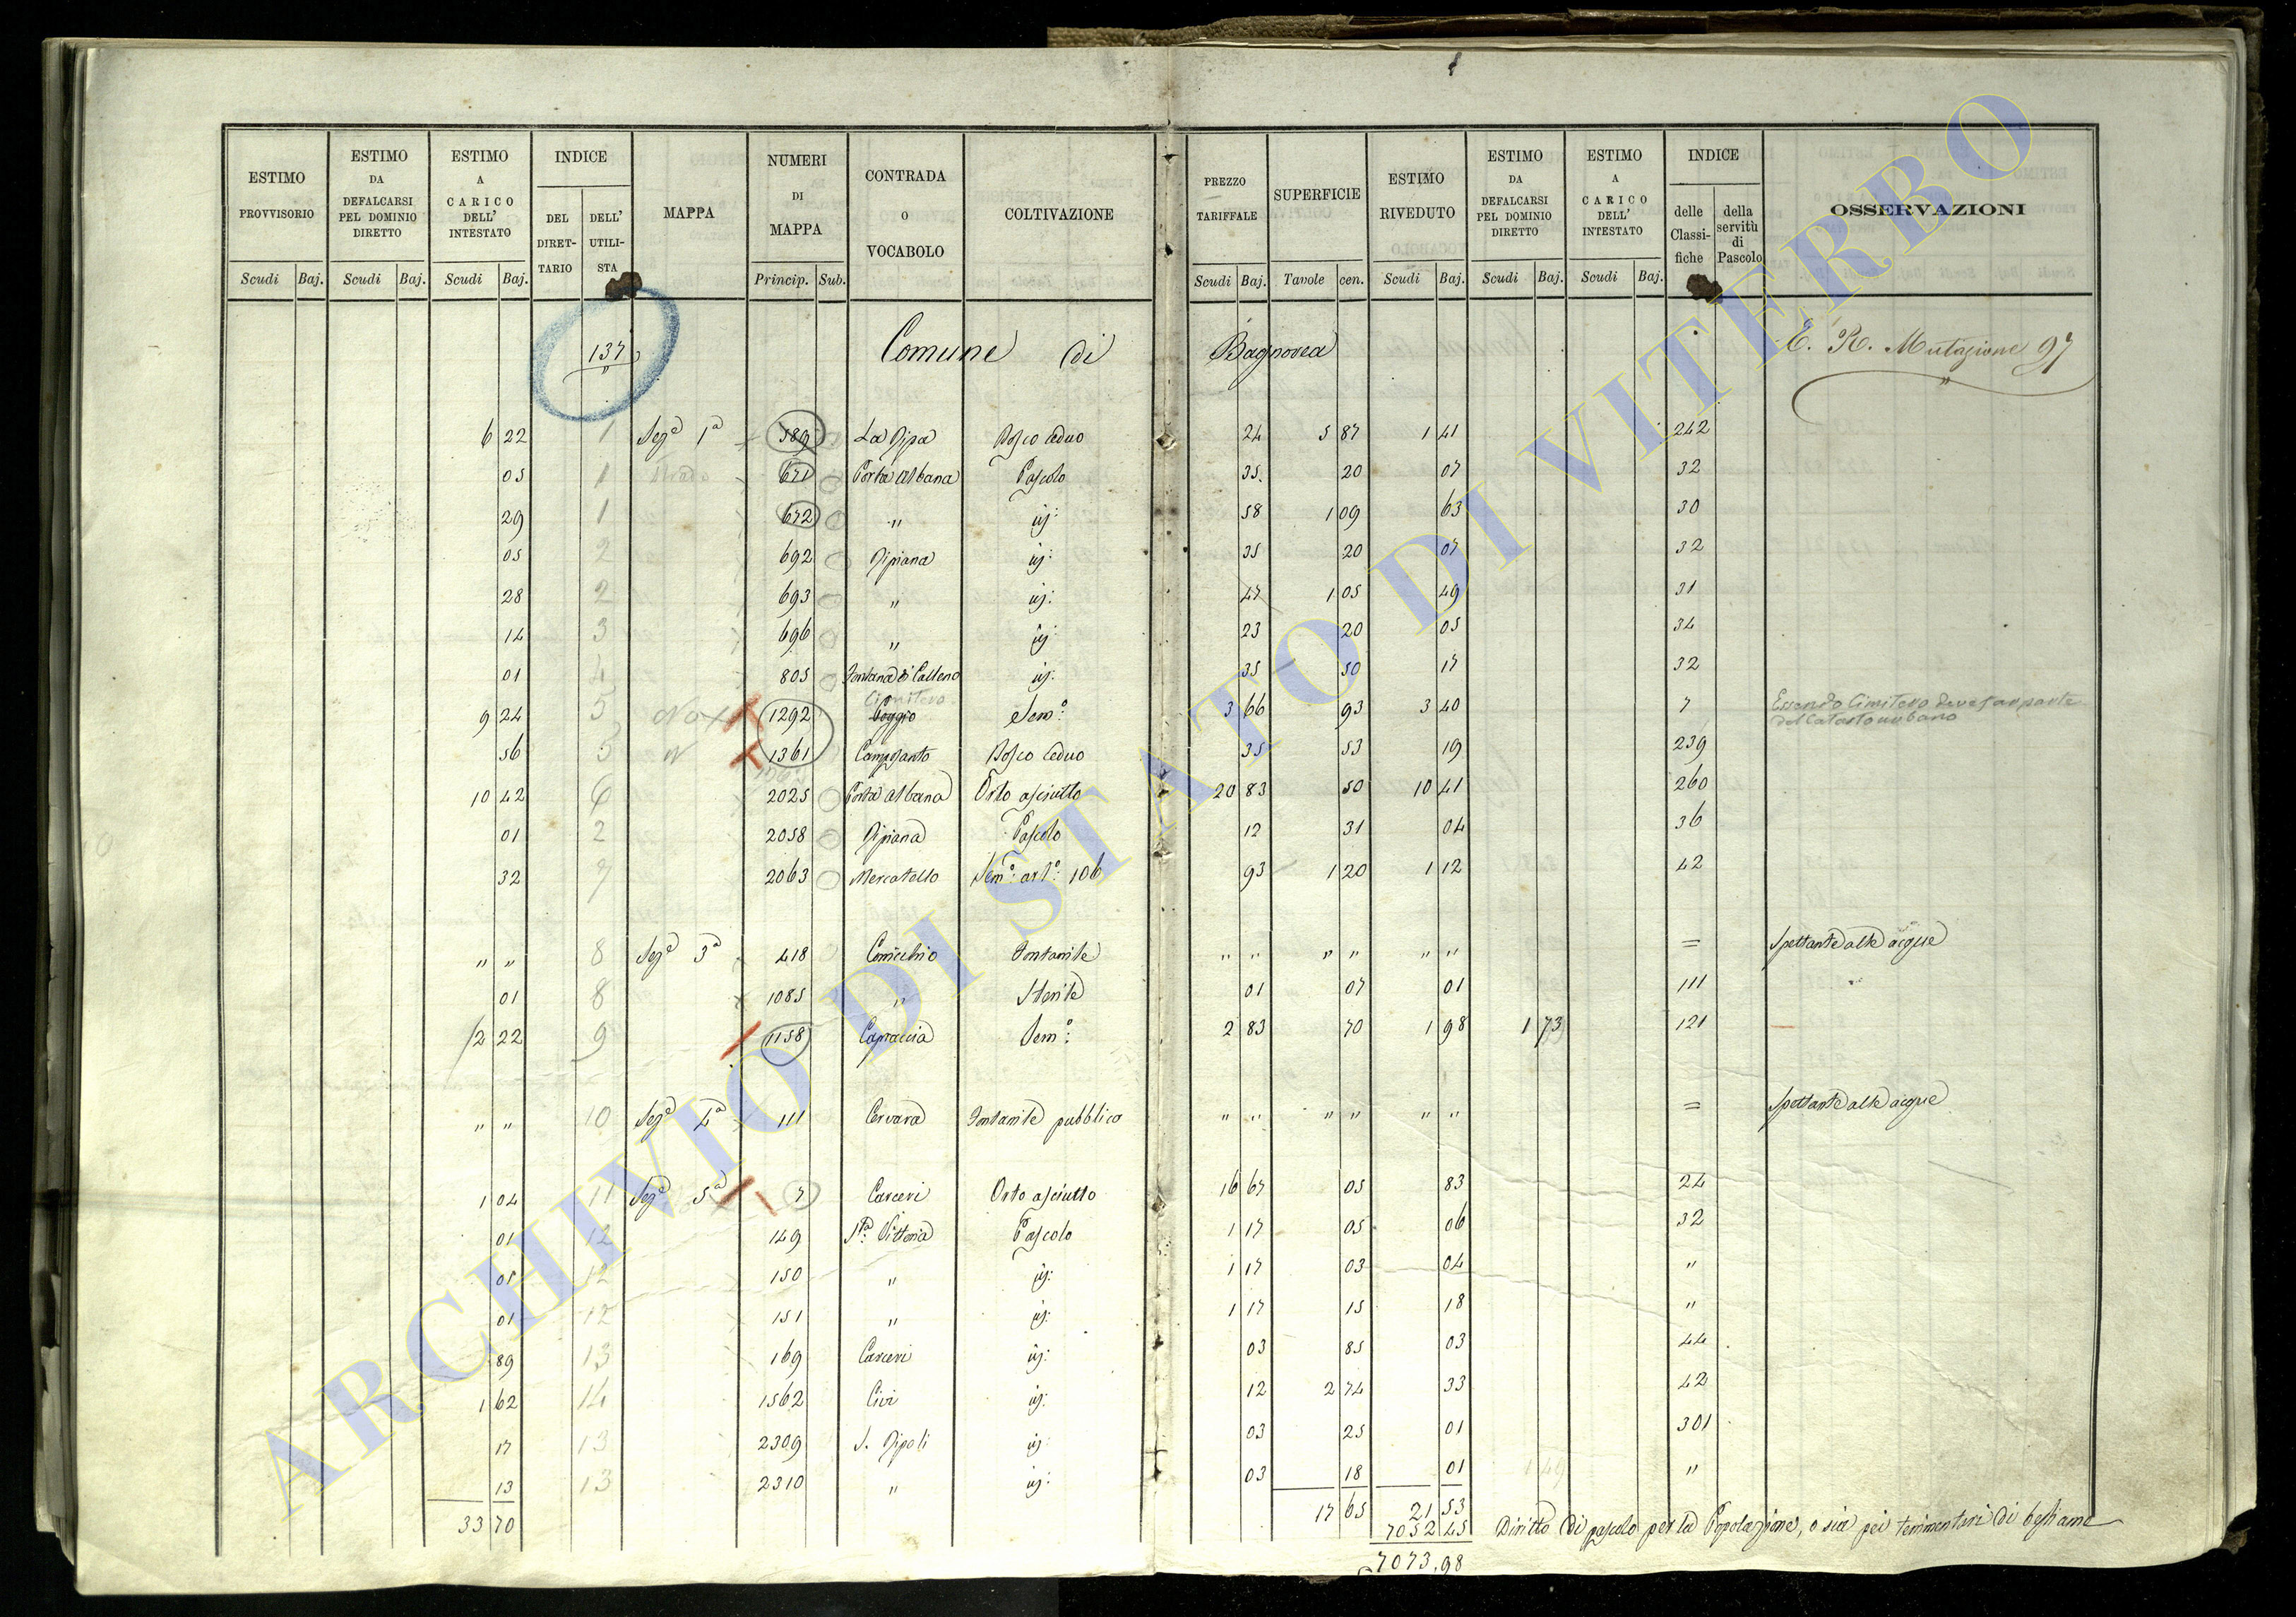 ESTIMO PROVVISORIO
Scudi Baj.
ESTIMO DA DEFALCARSI PEL DOMINIO DIRETTO
Scudi Baj.
ESTIMO A CARICO DELL' INTESTATO
Scudi Baj.
INDICE
DEL DIRET-TARIO
DELL' UTILI-STA
MAPPA
NUMERI DI MAPPA
Princip. Sub.
CONTRADA O VOCABOLO
COLTIVAZIONE
PREZZO TARIFFALE
Scudi Baj.
SUPERFICIE
Tavole cen.
ESTIMO RIVEDUTO
Scudi Baj.
ESTIMO DA DEFALCARSI PEL DOMINIO DIRETTO
Scudi Baj.
ESTIMO A CARICO DELL' INTESTATO
Scudi Baj.
INDICE
delle Classi-fiche
della servitù di Pascolo
OSSERVAZIONI
137 Comune di Bagnorea E. R. Mutazione 97
6 22 1 Sez.e 1a 589 La Ripa Bosco ceduo 24 5 87 1 41 242
05 1 Strada 671 Porta Albana Pascolo 35 20 07 32
29 1 672 " id: 58 1 09 63 30
05 2 692 Ripiana id: 35 20 07 32
28 2 693 " id: 47 1 05 49 31
14 3 696 " id: 23 20 05 34
01 4 805 Fontana di Calleno id: 35 50 17 32
Cimitero
9 24 5 No 1292 Poggio Sem.o 3 66 93 3 40 7 Essendo Cimitero deve far parte
del Catasto urbano
56 5 1361 Camposanto Bosco ceduo 35 53 19 239
10 42 6 2025 Porta Albana Orto asciutto 20 83 50 10 41 260
01 2 2058 Ripiana Pascolo 12 31 04 36
32 7 2063 Mercatello Sem.o art.o 106 93 1 20 1 12 42
" " 8 Sez.e 3a 418 Fontanile " " " " " " = Spettante alle acque
01 8 1085 " Sterile 01 07 01 111 "
2 22 9 1158 Capraccia Sem.o 2 83 70 1 98 1 73 121
" " 10 Sez.e 4a 111 Cervara Fontanile pubblico " " " " " " = Spettante alle acque
1 04 11 Sez.e 5a 7 Carceri Orto asciutto 16 67 05 83 24
01 12 149 S.ta Vittoria Pascolo 1 17 05 06 32
01 12 150 " id: 1 17 03 04 "
01 12 151 " id: 1 17 15 18 "
89 13 169 Carceri id: 03 85 03 44
1 62 14 1562 Civi id: 12 2 74 33 42
17 13 2309 S. Ripoli id: 03 25 01 301
13 13 2310 " id: 03 18 01 "
33 70 17 65 21 53
7052 45 Diritto di pascolo per la Popolazione, o sia pei tenimentari di bestiame
7073.98
ARCHIVIO DI STATO DI VITERBO